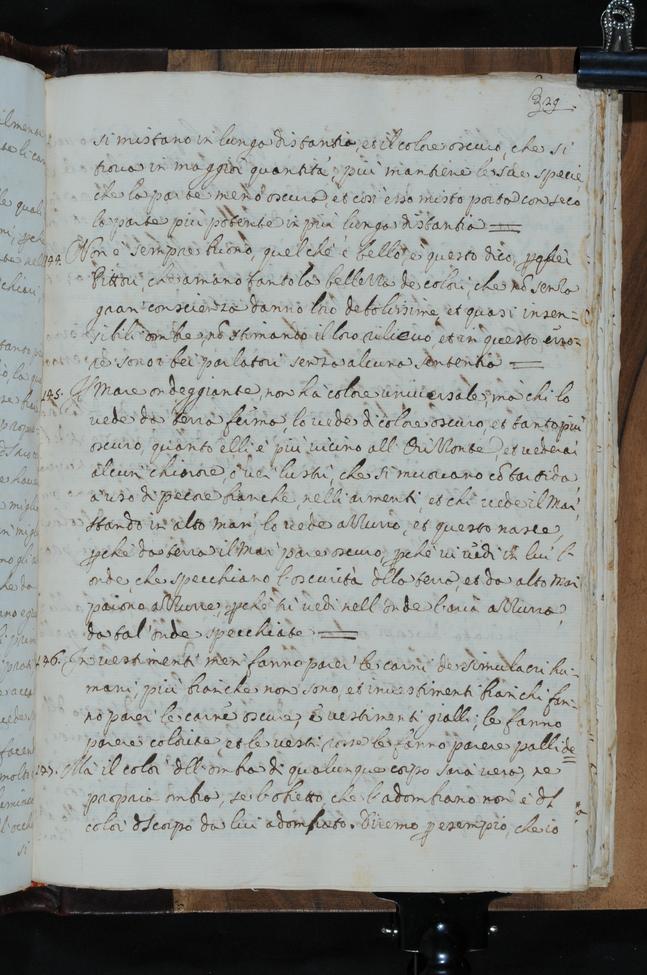 329
si mistano in lunga distantia, et il colore oscuro, che si
trova in maggior quantità, più mantiene le sue specie,
che la parte meno oscura et così esso misto porta con seco
la parte più potente in più lunga distantia
144. Non è sempre buono, quel che è bello, e questo dico, p quei
Pittori, che amano tanto la bellezza de colori, che nõ senza
gran conscienza danno loro debolissime, et quasi insen-
sibili ombre, nõ stimando il loro rilievo, et in questo erro-
re sono i bei parlatori senza alcuna sententia
145. Il Mare ondeggiante, non ha colore universale, ma chi lo
vede da terra ferma, lo vede di colore oscuro, et tanto più
oscuro, quanto elli è più vicino all' Orizonte, et vederai
alcun chiarore, o ver lustri, che si muovano cõ tardità
a uso di pecore bianche, nelli armenti et chi vede il Mar,
stando in alto mar, lo vede azurro, et questo nasce,
pchè da terra il Mar pare oscuro, pchè vi vedi in lui l'
onde, che specchiano l'oscurità dlla terra, et da alto Mar
paiono azzurre, pchè tu vedi nell' onde l'aria azurra,
da tal onde specchiate
146. I vestimenti neri fanno parer le carni de simulacri hu-
mani, più bianche non sono, et i vestimenti bianchi fan-
no parer le carne oscure, e vestimenti gialli, le fanno
parere colorite, et le vesti rosse le fanno parere pallide
147. Mai il color dll' ombra di qualunque corpo sarà vera, ne
propria ombra, se l'obietto, che l'adombrano non è dl
color dl corpo da lui adombrato. Diremo p esempio, che io